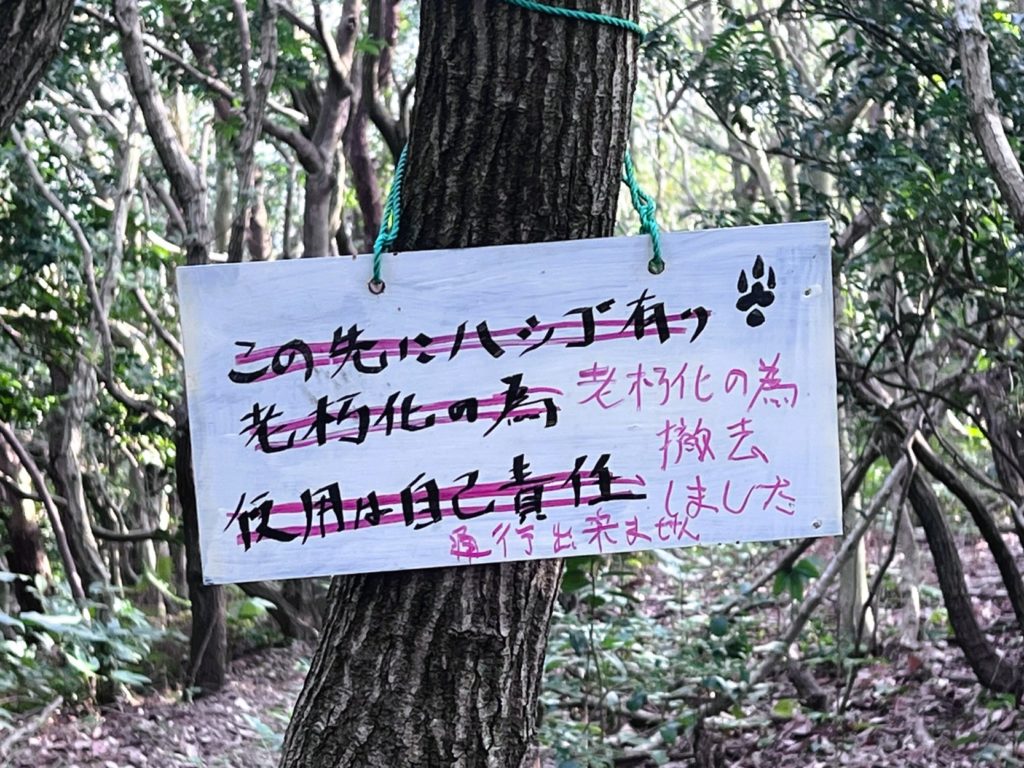 この先にハシゴ有り
老朽化の為
使用は自己責任
老朽化の為
撤去
しました
通行出来ません